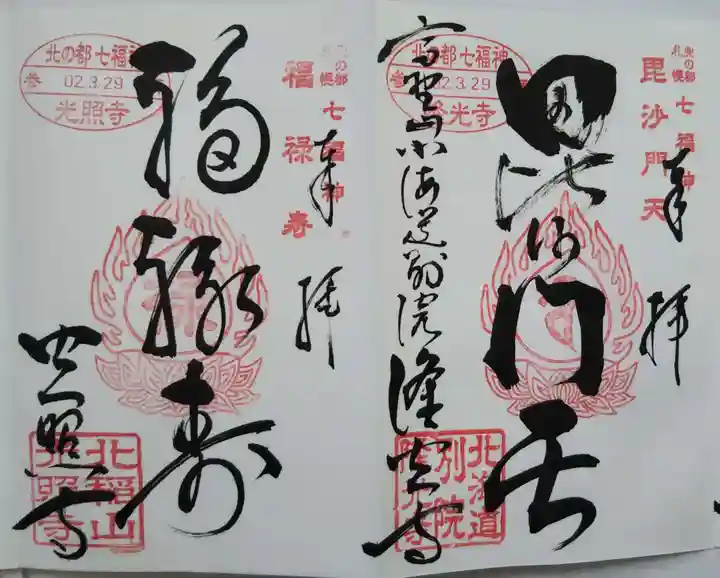 北の都
札幌
七福神
毘沙門天
奉拝
毘沙門天
高野山北海道別院隆光寺
北の都七福神
参 02.3.29
隆光寺
北海道
別院
隆光寺
七福神
福禄寿
奉拝
福禄寿
光照寺
北の都七福神
参 02.3.29
光照寺
北稲山
光照寺